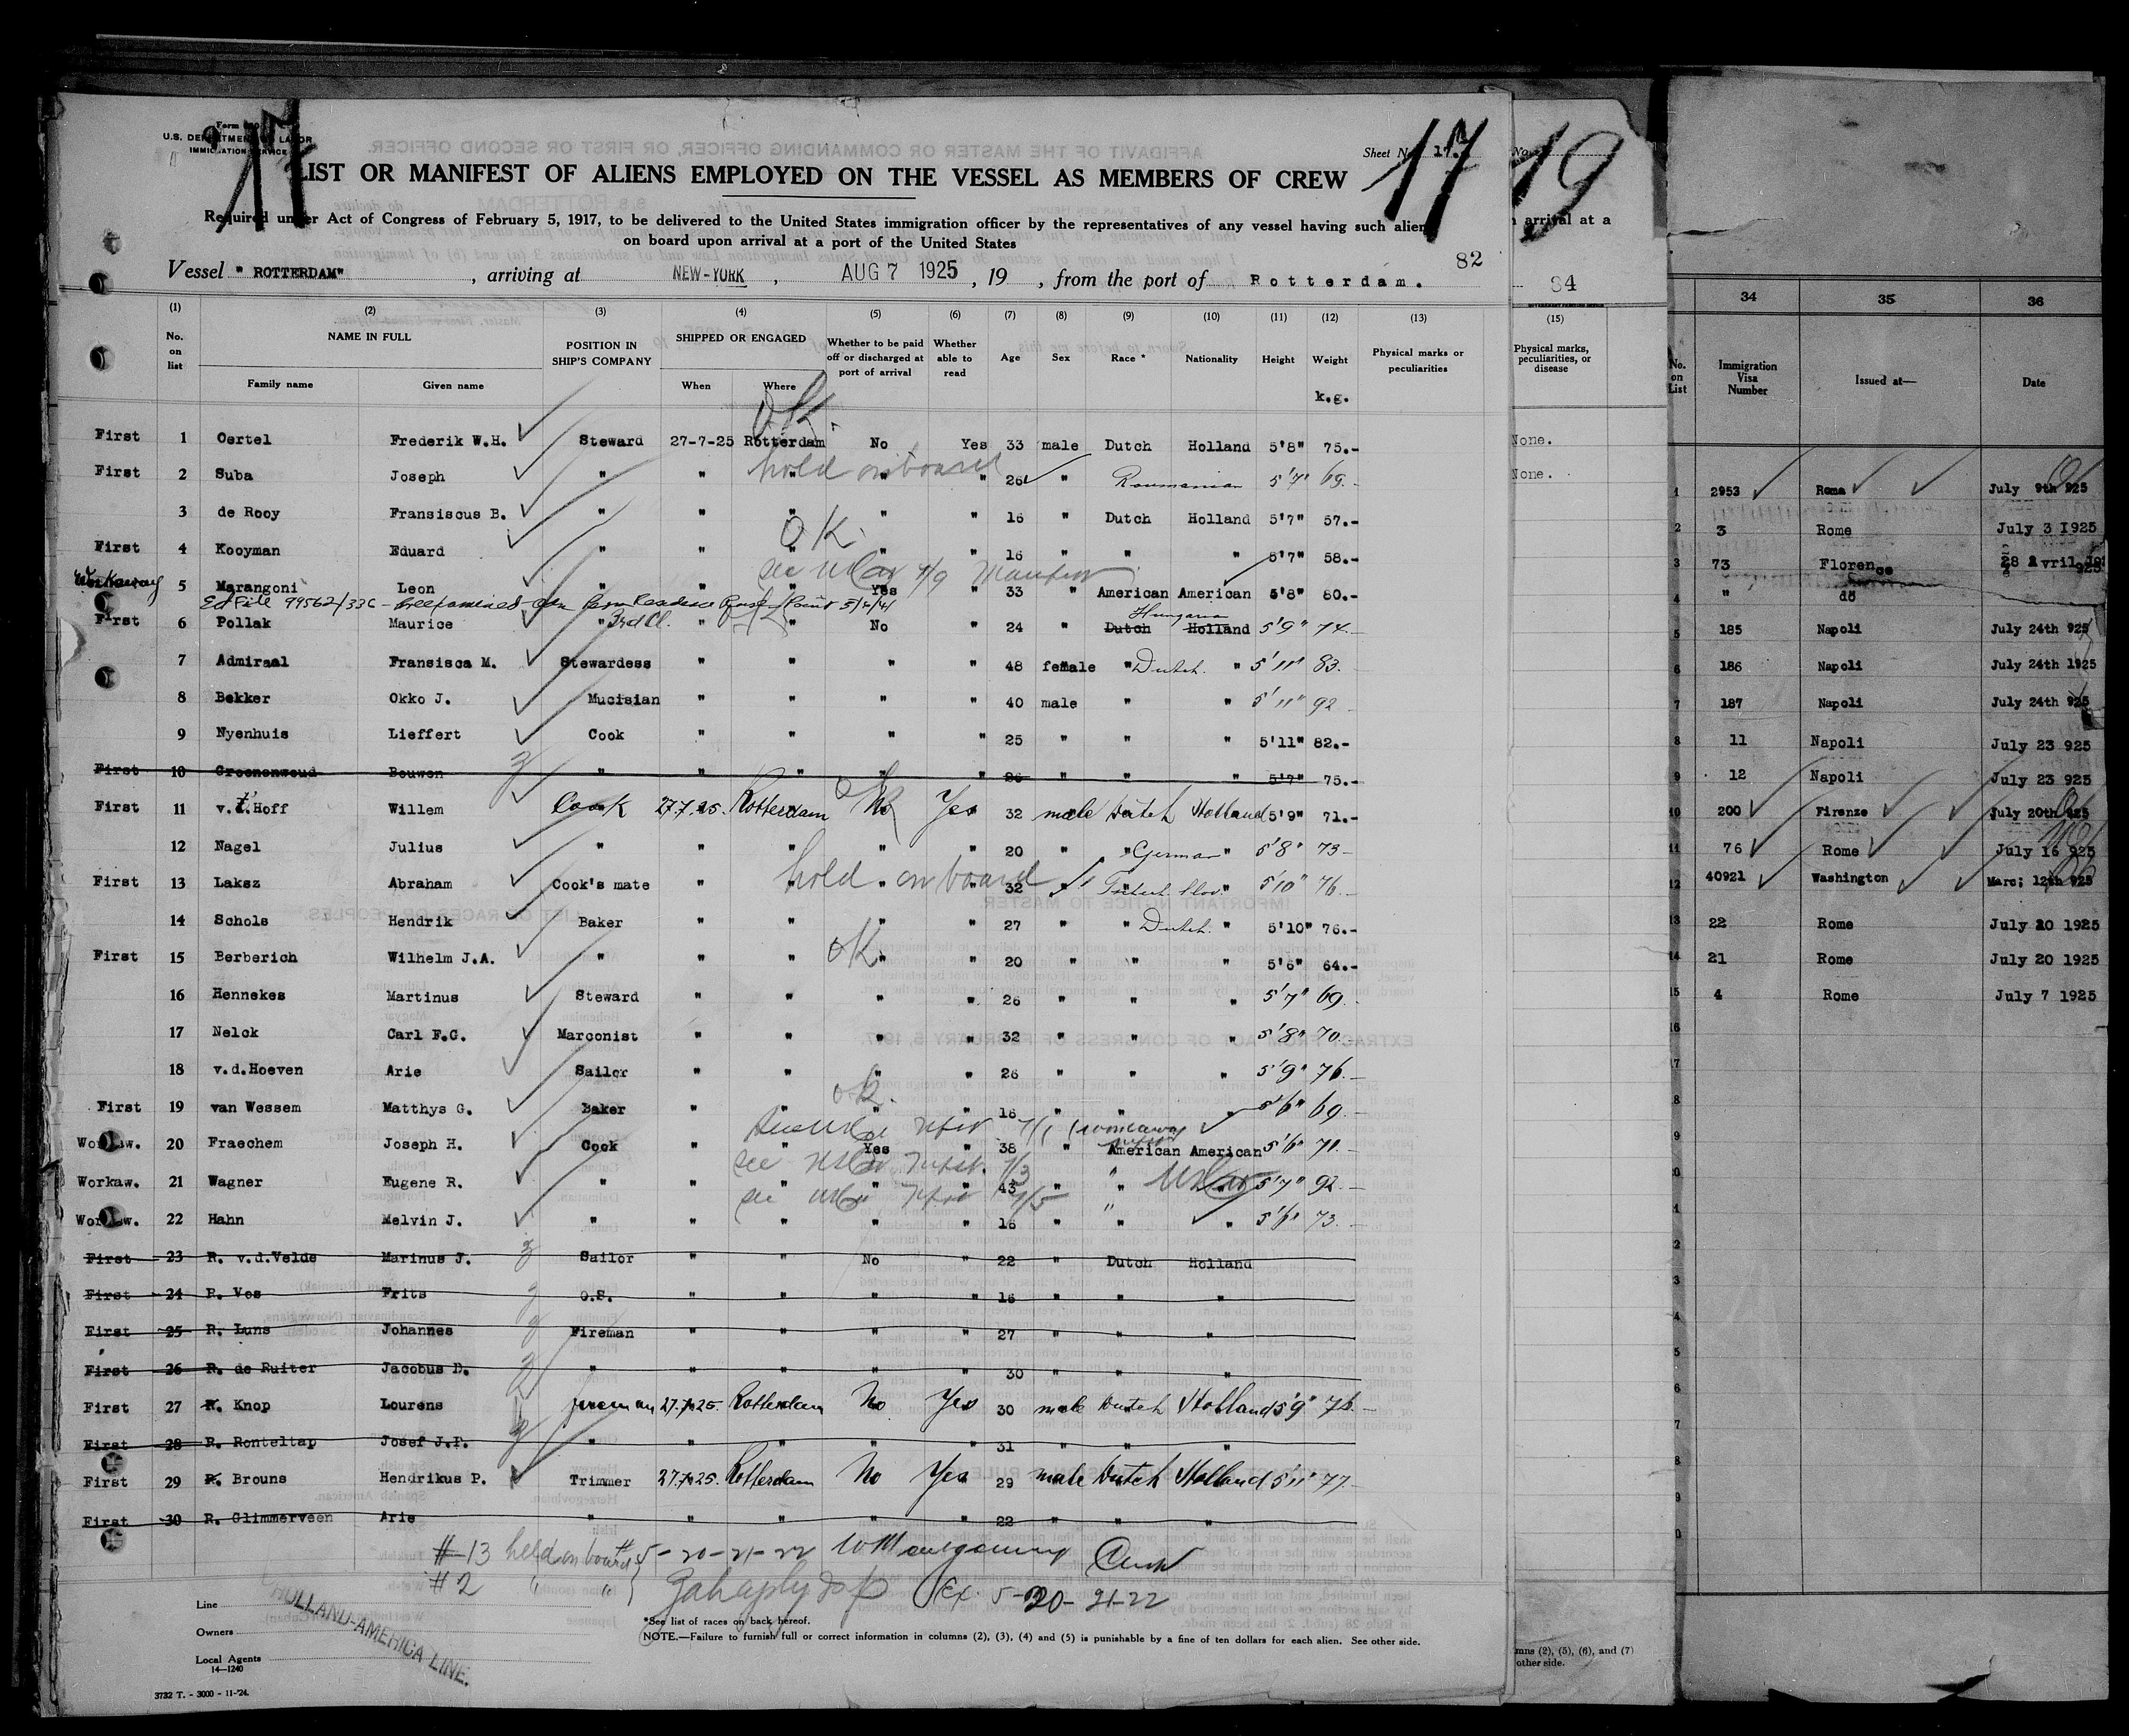 Form 680
U.S. DEPARTMENT OF LABOR
IMMIGRATION SERVICE
17
Sheet No. 17.
17
LIST OR MANIFEST OF ALIENS EMPLOYED ON THE VESSEL AS MEMBERS OF CREW
Required under Act of Congress of February 5, 1917, to be delivered to the United States immigration officer by the representatives of any vessel having such aliens
on board upon arrival at a port of the United States
82
Vessel "ROTTERDAM", arriving at NEW-YORK, AUG 7 1925, 19 , from the port of Rotterdam.
(1) (2) (3) (4) (5) (6) (7) (8) (9) (10) (11) (12) (13)
No. on list NAME IN FULL Family name Given name POSITION IN SHIP'S COMPANY SHIPPED OR ENGAGED When Where Whether to be paid off or discharged at port of arrival Whether able to read Age Sex Race * Nationality Height Weight k.g. Physical marks or peculiarities
OK.
First 1 Oertel Frederik W.H. Steward 27-7-25 Rotterdam No Yes 33 male Dutch Holland 5'8" 75.-
hold on board
First 2 Suba Joseph " " " " " 26 " Roumanian 5'7" 69.-
3 de Rooy Fransiscus B. " " " " " 16 " Dutch Holland 5'7" 57.-
OK.
First 4 Kooyman Eduard " " " " " 16 " " " 5'7" 58.-
see 7/9 Manifest
Workaway 5 Marangoni Leon " " " Yes " 33 " American American 5'8" 80.-
99562/33C 5/4/41
First 6 Pollak Maurice " 3rd Cl. " " No " 24 " Dutch Hungarian Holland 5'9" 74.-
7 Admiraal Fransisca M. Stewardess " " " " 48 female " Dutch. " 5'11" 83.
8 Bekker Okko J. Mucisian " " " " 40 male " " 5'11" 92
9 Nyenhuis Lieffert Cook " " " " 25 " " " 5'11" 82.-
First 10 Groenenwoud Bouwen " " " " " 26 " " " 5'7" 75.-
First 11 v.t.Hoff Willem Cook 27.7.25. Rotterdam No Yes 32 male Dutch Holland 5'9" 71.-
12 Nagel Julius " " " " " 20 " " German " 5'8" 73-
hold on board
First 13 Laksz Abraham Cook's mate " " " " 32 " " 5'10" 76.-
14 Schols Hendrik Baker " " " " 27 " " Dutch. " 5'10" 76.-
OK.
First 15 Berberich Wilhelm J.A. " " " " " 20 " " " 5'6" 64.-
16 Hennekes Martinus Steward " " " " 26 " " " 5'7" 69.
17 Nelck Carl F.G. Marconist " " " " 32 " " " 5'8" 70.
18 v.d.Hoeven Arie Sailor " " " " 26 " " " 5'9" 76.-
ok.
First 19 van Wessem Matthys G. Baker " " " " 18 " " " 5'6" 69.-
7/1 workaway
Workaw. 20 Fraechem Joseph H. Cook " " Yes " 38 " American American 5'6" 71.-
see 7/3
Workaw. 21 Wagner Eugene R. " " " " " 43 " " 5'7" 92.-
see 7/5
Workaw. 22 Hahn Melvin J. " " " " " 16 " " " 5'6" 73.-
First 23 R. v.d.Velde Marinus J. Sailor " " No " 22 " Dutch Holland
First 24 R. Vos Frits O.S. " " " " 16 " " "
First 25 R. Luns Johannes Fireman " " " " 27 " " "
First 26 R. de Ruiter Jacobus D. " " " " " 30 " " "
First 27 R. Knop Lourens fireman 27.7.25. Rotterdam No Yes 30 male Dutch Holland 5'9" 76.-
First 28 R. Ronteltap Josef J.P. " " " " " 31 " " "
First 29 R. Brouns Hendrikus P. Trimmer 27.7.25. Rotterdam No Yes 29 male Dutch Holland 5'11" 77.-
First 30 R. Glimmerveen Arie " " " " " 22 " " "
#13 held on board #5-20-21-22
#2 " " Ex. 5-20-21-22
Line
HOLLAND-AMERICA LINE.
Owners
Local Agents
14—1240
*See list of races on back hereof.
NOTE.—Failure to furnish full or correct information in columns (2), (3), (4) and (5) is punishable by a fine of ten dollars for each alien. See other side.
3732 T. - 3000 - 11-'24.
No. 19
arrival at a
84
(15)
Physical marks, peculiarities, or disease
None.
None.
mns (2), (5), (6), and (7)
other side.
34 35 36
No. on List Immigration Visa Number Issued at— Date
1 2953 Roma July 9th 925
2 3 Rome July 3 1925
3 73 Florence 28 Avril 1925
4 " dö
5 185 Napoli July 24th 925
6 186 Napoli July 24th 1925
7 187 Napoli July 24th 925
8 11 Napoli July 23 925
9 12 Napoli July 23 925
10 200 Firenze July 20th 925
11 76 Rome July 16 925
12 40921 Washington Marc; 12th 925
13 22 Rome July 20 1925
14 21 Rome July 20 1925
15 4 Rome July 7 1925
16